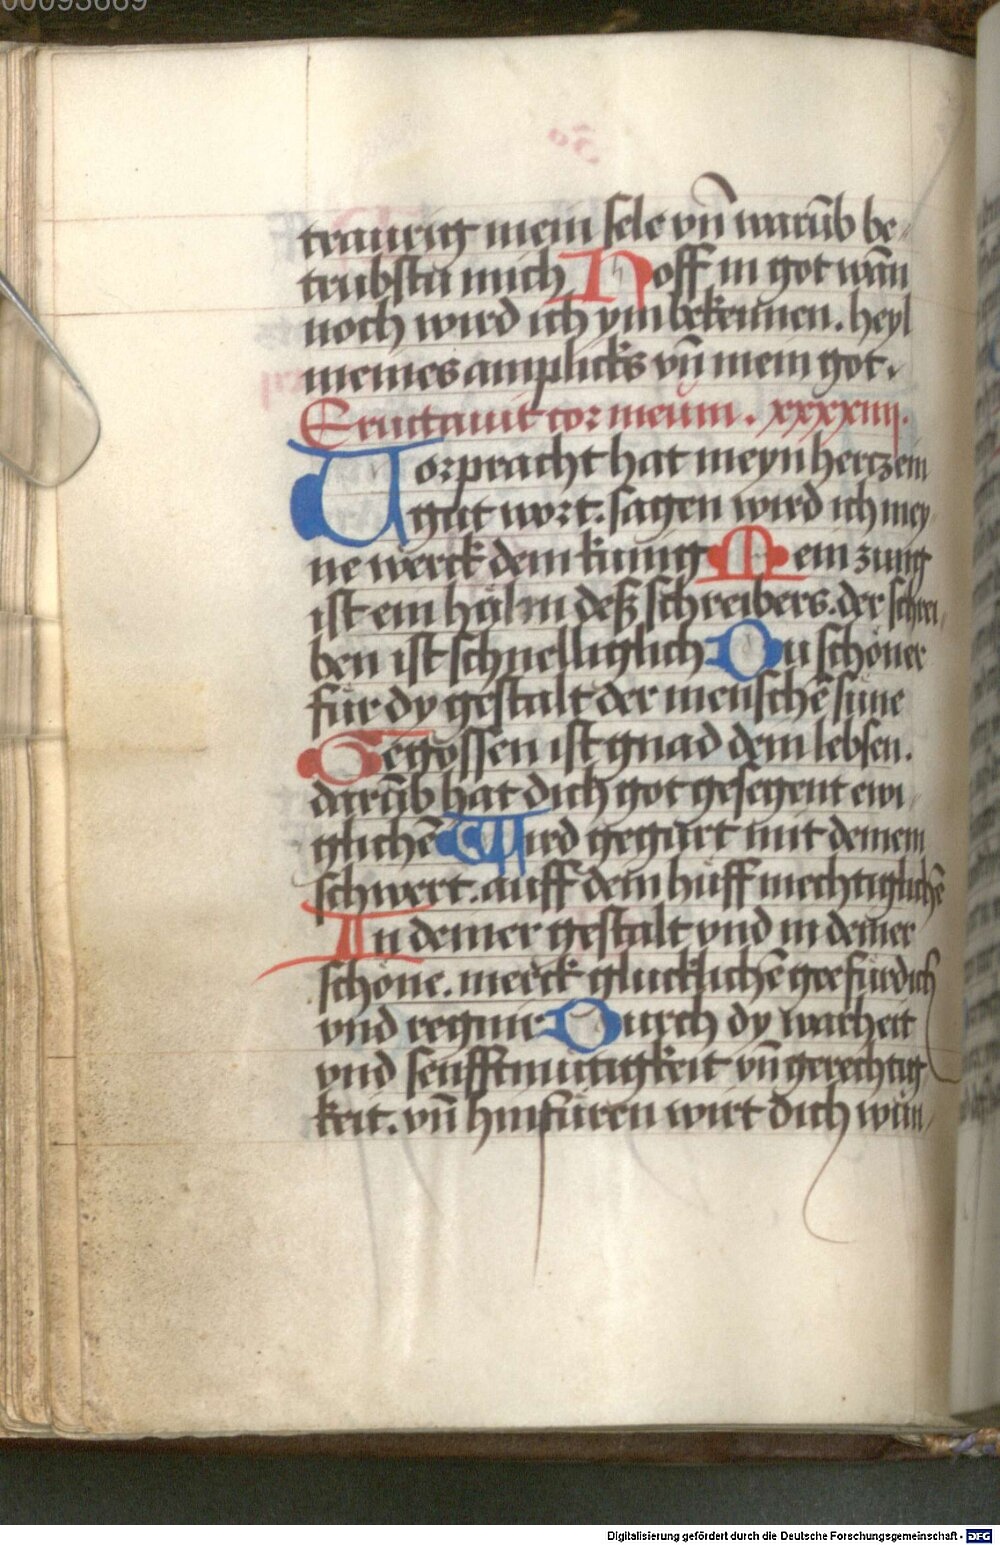 00093669
traurig mein sele vn̄ warūb be
trubstu mich Hoff in got wān
noch wird ich ym bekennen. heyl
meines amplicks vn̄ mein got.
Eructauit cor meum. xxxxiiij.
Vorpracht hat meyn hertz ein
gut wort. sagen wird ich mey
ne werck dem kunig Mein zung
ist ein halm deß schreibers. der schrei
ben ist schnelliglich Du schöner
für dy gestalt der menschē süne
Gegossen ist gnad dein lebsen.
darūb hat dich got gesegent ewi
glichē Wird gegürt mit deinem
schwert. auff dein hüff mechtiglichē
In deiner gestalt vnd in deiner
schöne. merck glucklichē gee für dich
vnd regnir Durch dy warheit
vnd senfftmutigkeit vn̄ gerechtig
keit. vn̄ hinfüren wirt dich wūn
Digitalisierung gefördert durch die Deutsche Forschungsgemeinschaft - DFG